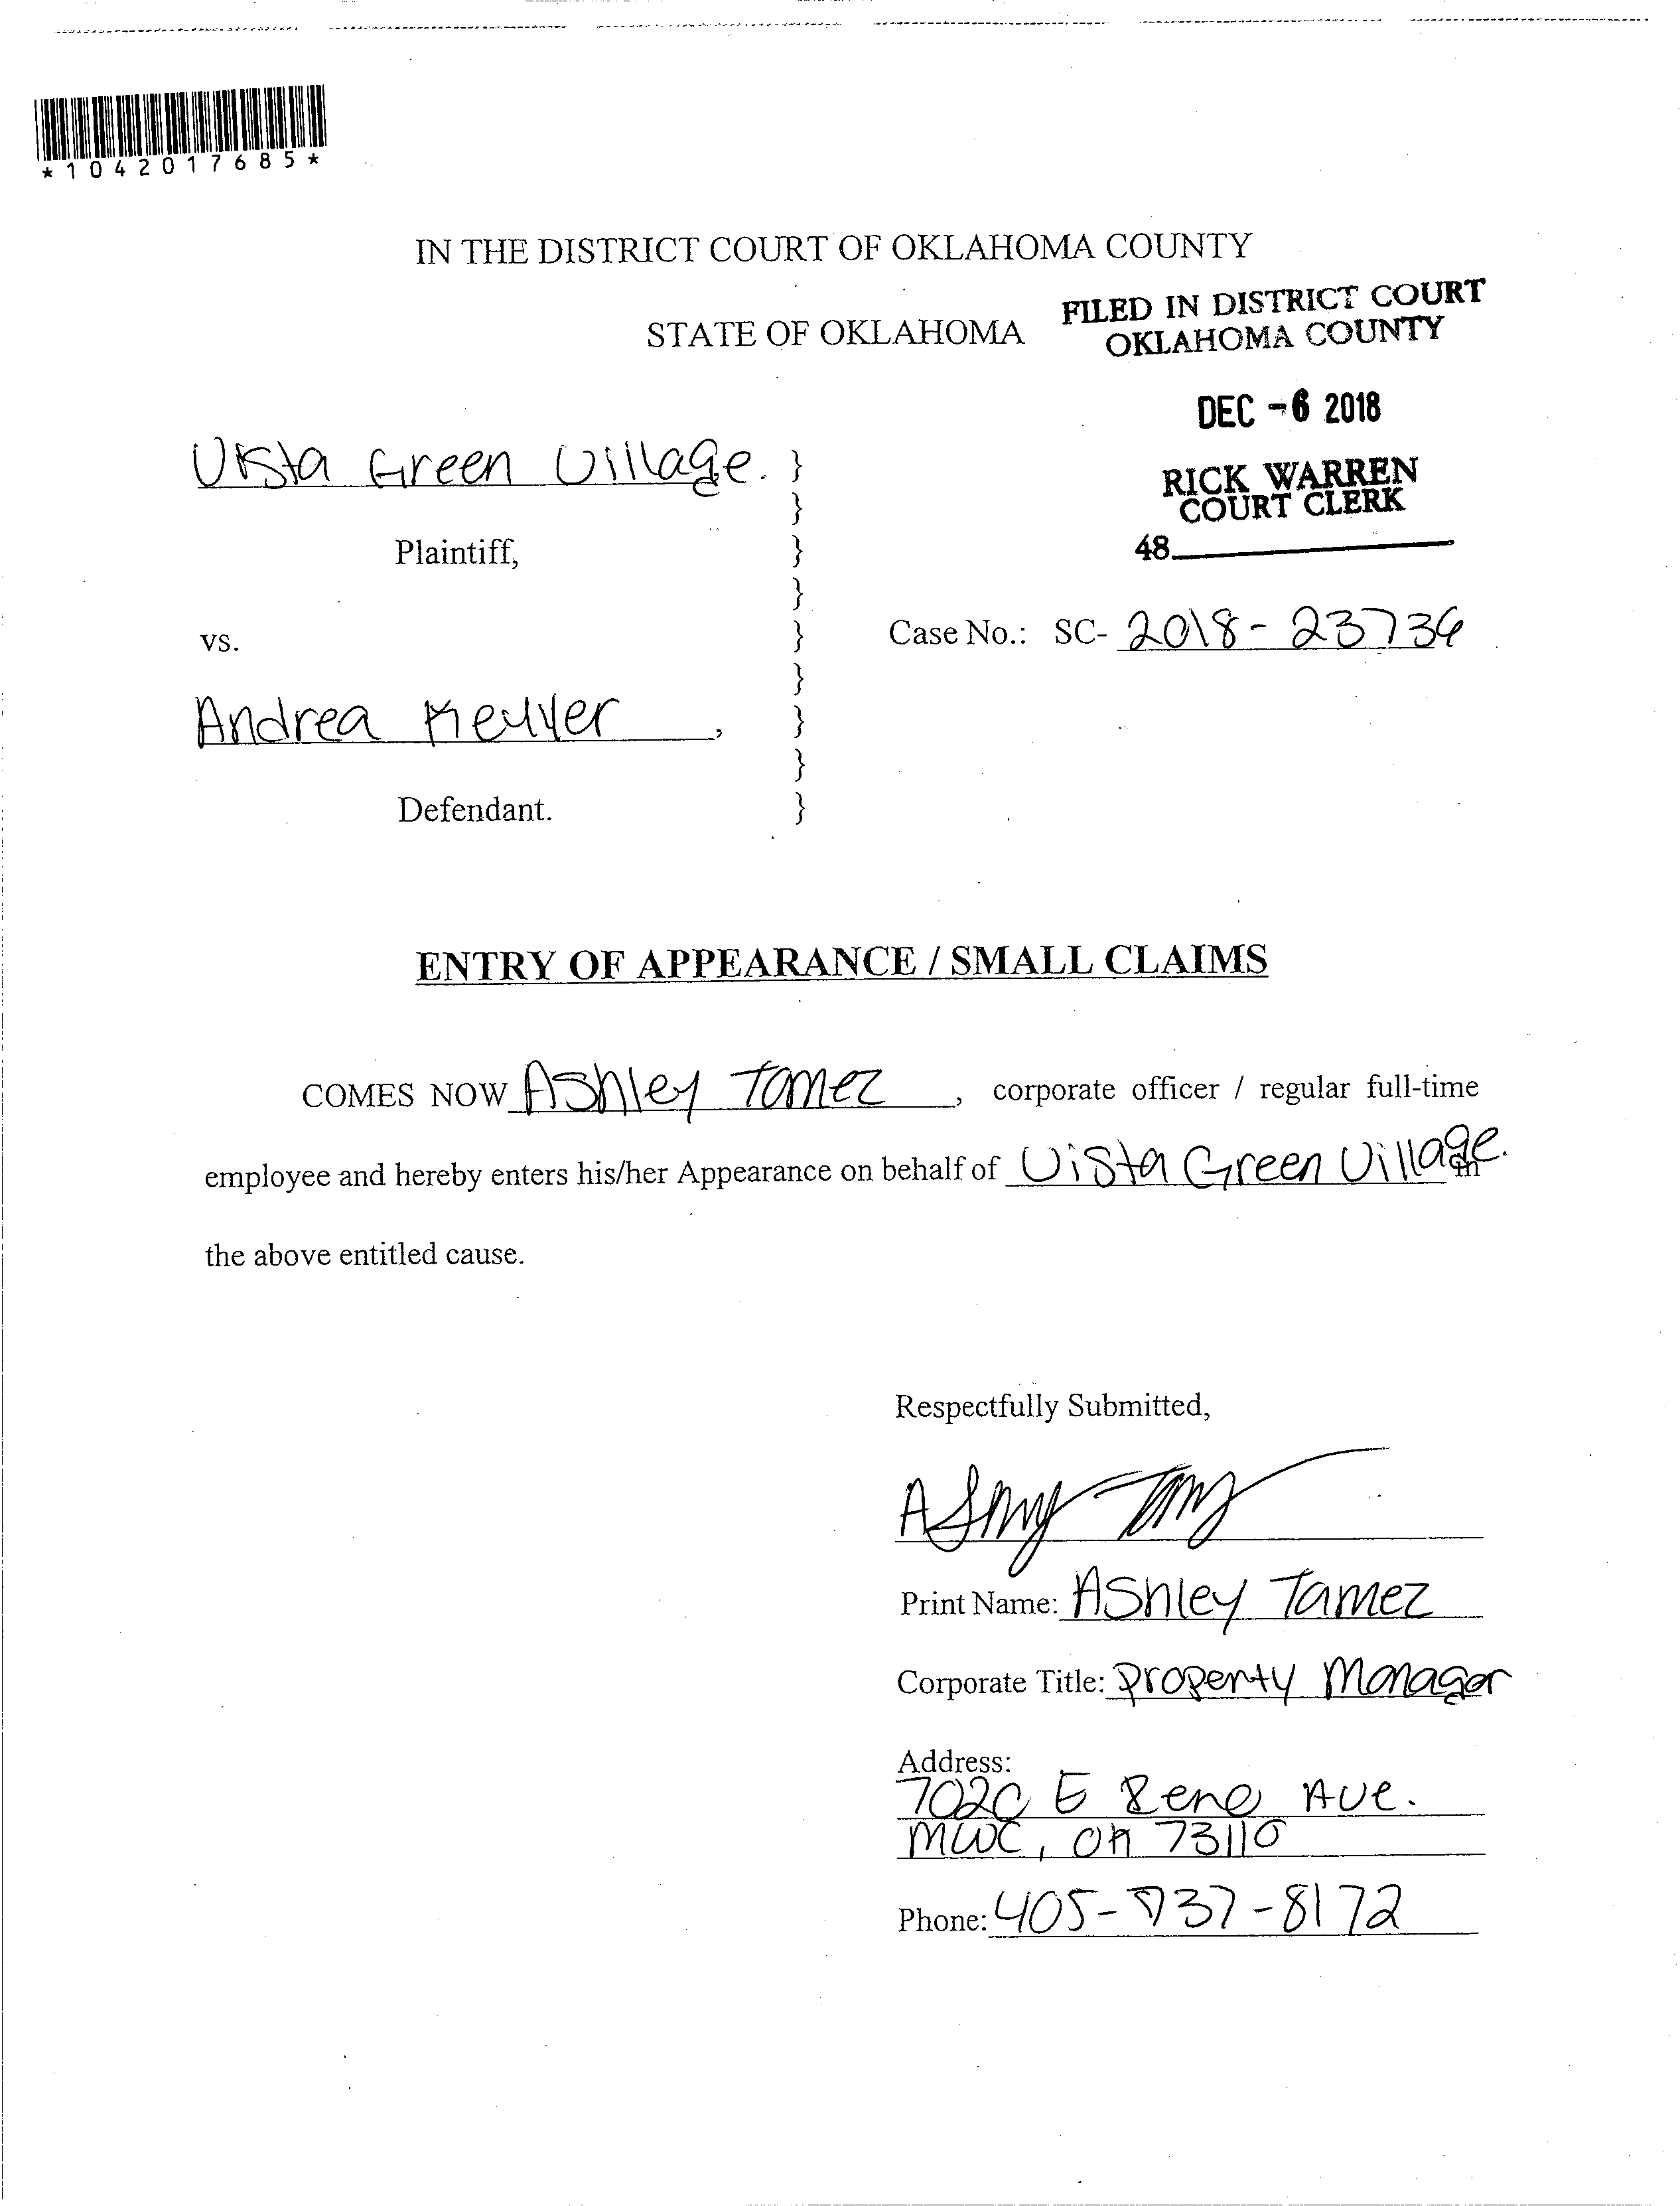 *1042017685*
IN THE DISTRICT COURT OF OKLAHOMA COUNTY
STATE OF OKLAHOMA
FILED IN DISTRICT COURT
OKLAHOMA COUNTY
DEC -6 2018
RICK WARREN
COURT CLERK
48
Vista Green Village. }
}
Plaintiff, }
}
vs. }
Case No.: SC- 2018-23736
}
Andrea , }
}
Defendant. }
ENTRY OF APPEARANCE / SMALL CLAIMS
COMES NOW Ashley Tamez, corporate officer / regular full-time
employee and hereby enters his/her Appearance on behalf of Vista Green Village. in
the above entitled cause.
Respectfully Submitted,
Print Name: Ashley Tamez
Corporate Title: Property Manager
Address:
7020 E Reno Ave.
MWC, OK 73110
Phone: 405-737-8172